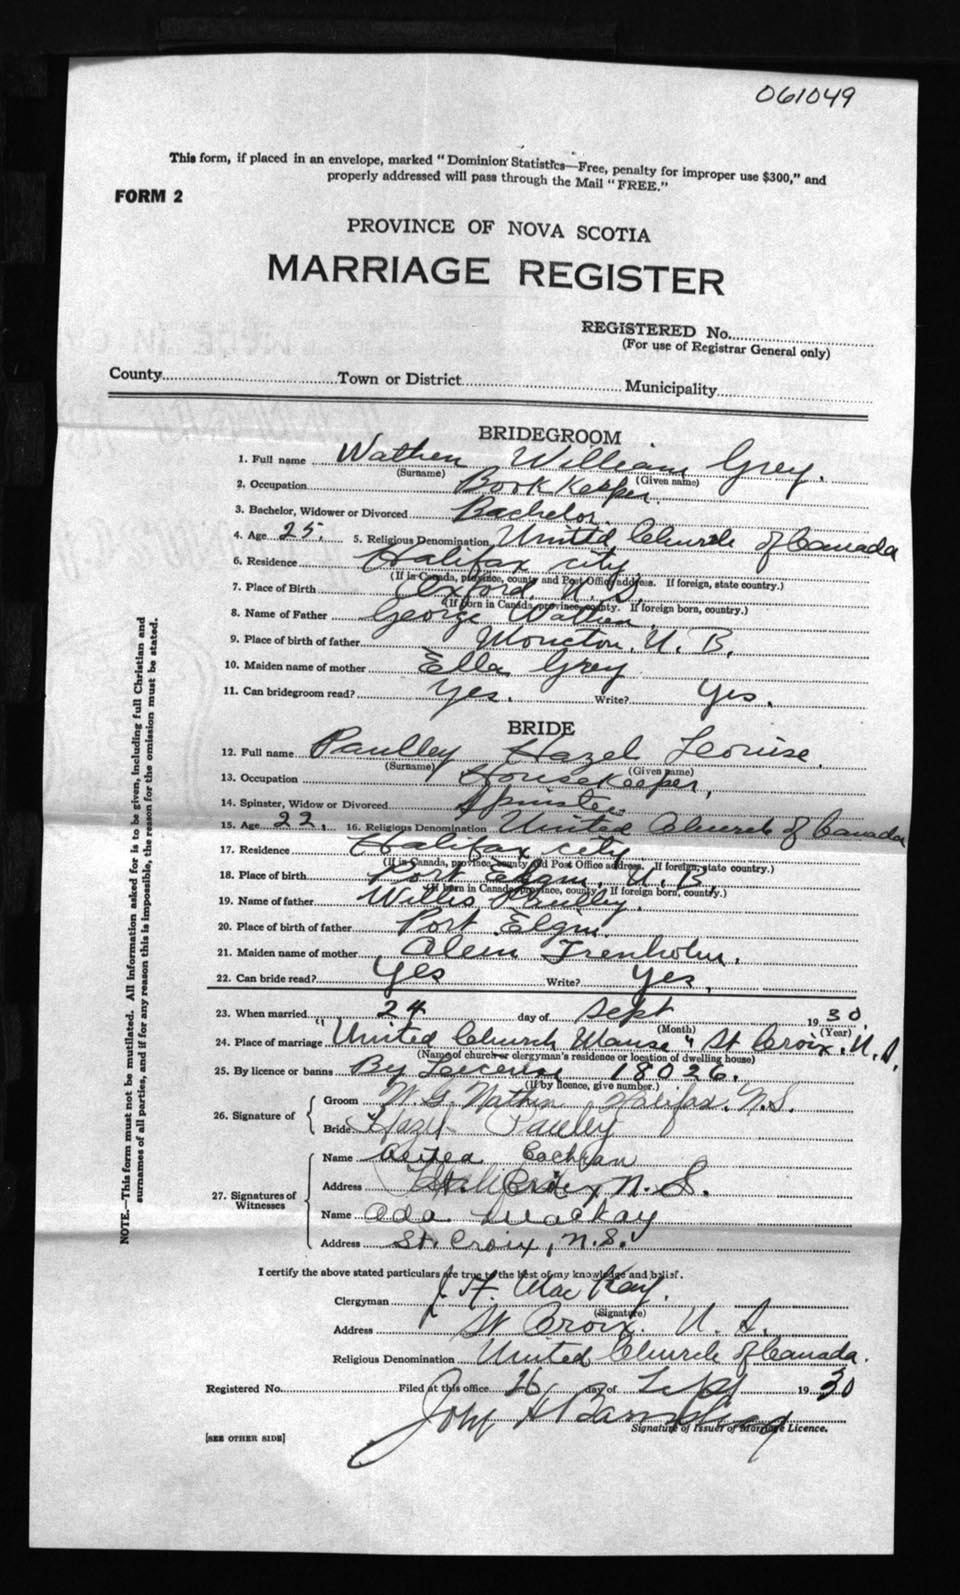 061049
This form, if placed in an envelope, marked "Dominion Statistics—Free, penalty for improper use $300," and
properly addressed will pass through the Mail "FREE."
FORM 2
PROVINCE OF NOVA SCOTIA
MARRIAGE REGISTER
REGISTERED No.
(For use of Registrar General only)
County Town or District Municipality
BRIDEGROOM
1. Full name Wathen William Grey.
(Surname) (Given name)
2. Occupation Book Keeper.
3. Bachelor, Widower or Divorced Bachelor.
4. Age 25. 5. Religious Denomination United Church of Canada
6. Residence Halifax city.
(If in Canada, province, county and Post Office address. If foreign, state country.)
7. Place of Birth Oxford, N. S.
(If born in Canada, province, county. If foreign born, country.)
8. Name of Father George Wathen.
9. Place of birth of father Moncton, N. B.
10. Maiden name of mother Ella Grey
11. Can bridegroom read? Yes. Write? Yes.
BRIDE
12. Full name Paulley Hazel Leouise.
(Surname) (Given name)
13. Occupation Housekeeper,
14. Spinster, Widow or Divorced Spinster
15. Age 22, 16. Religious Denomination United Church of Canada
17. Residence Halifax city
(If in Canada, province, county and Post Office address, If foreign, state country.)
18. Place of birth Port Elgin, N. B.,
(If born in Canada, province, county. If foreign born, country.)
19. Name of father Willis Paulley.
20. Place of birth of father Port Elgin.
21. Maiden name of mother Trenholm.
22. Can bride read? Yes Write? Yes,
23. When married 24 day of Sept 1930.
(Month) (Year)
24. Place of marriage "United Church Manse" St Croix, N. S.
(Name of church or clergyman's residence or location of dwelling house)
25. By licence or banns By Leicense 18026.
(If by licence, give number.)
26. Signature of
Groom W. G. Wathen Halifax, N.S.
Bride Hazel Paulley
27. Signatures of
Witnesses
Name Cochran
Address St. Croix, N. S.
Name Ada MacKay
Address St. Croix, N.S.
I certify the above stated particulars are true to the best of my knowledge and belief.
Clergyman J. H. MacKay.
(Signature)
Address St Croix, N. S.
Religious Denomination United Church of Canada.
Registered No. Filed at this office 26 day of Sept 1930
John H
Signature of Issuer of Marriage Licence.
[SEE OTHER SIDE]
NOTE.—This form must not be mutilated. All information asked for is to be given, including full Christian and
surnames of all parties, and if for any reason this is impossible, the reason for the omission must be stated.